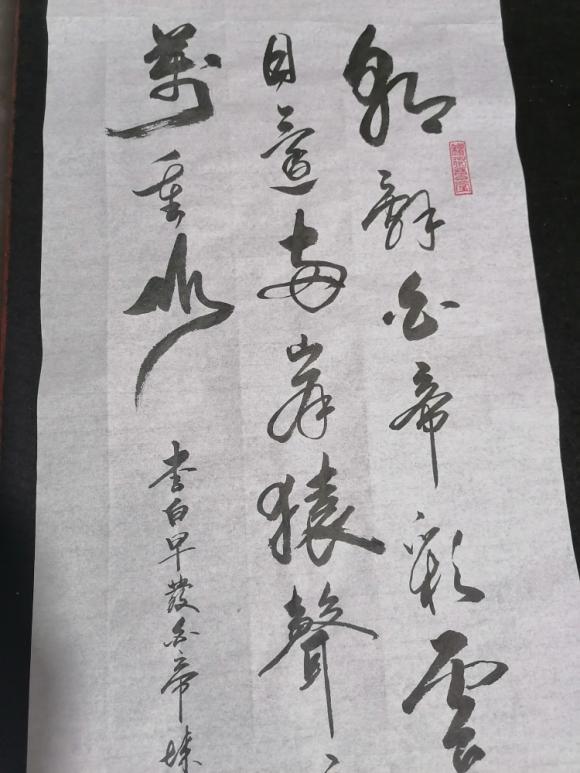 朝辭白帝彩雲
日還兩岸猿聲
萬重山
李白早發白帝城